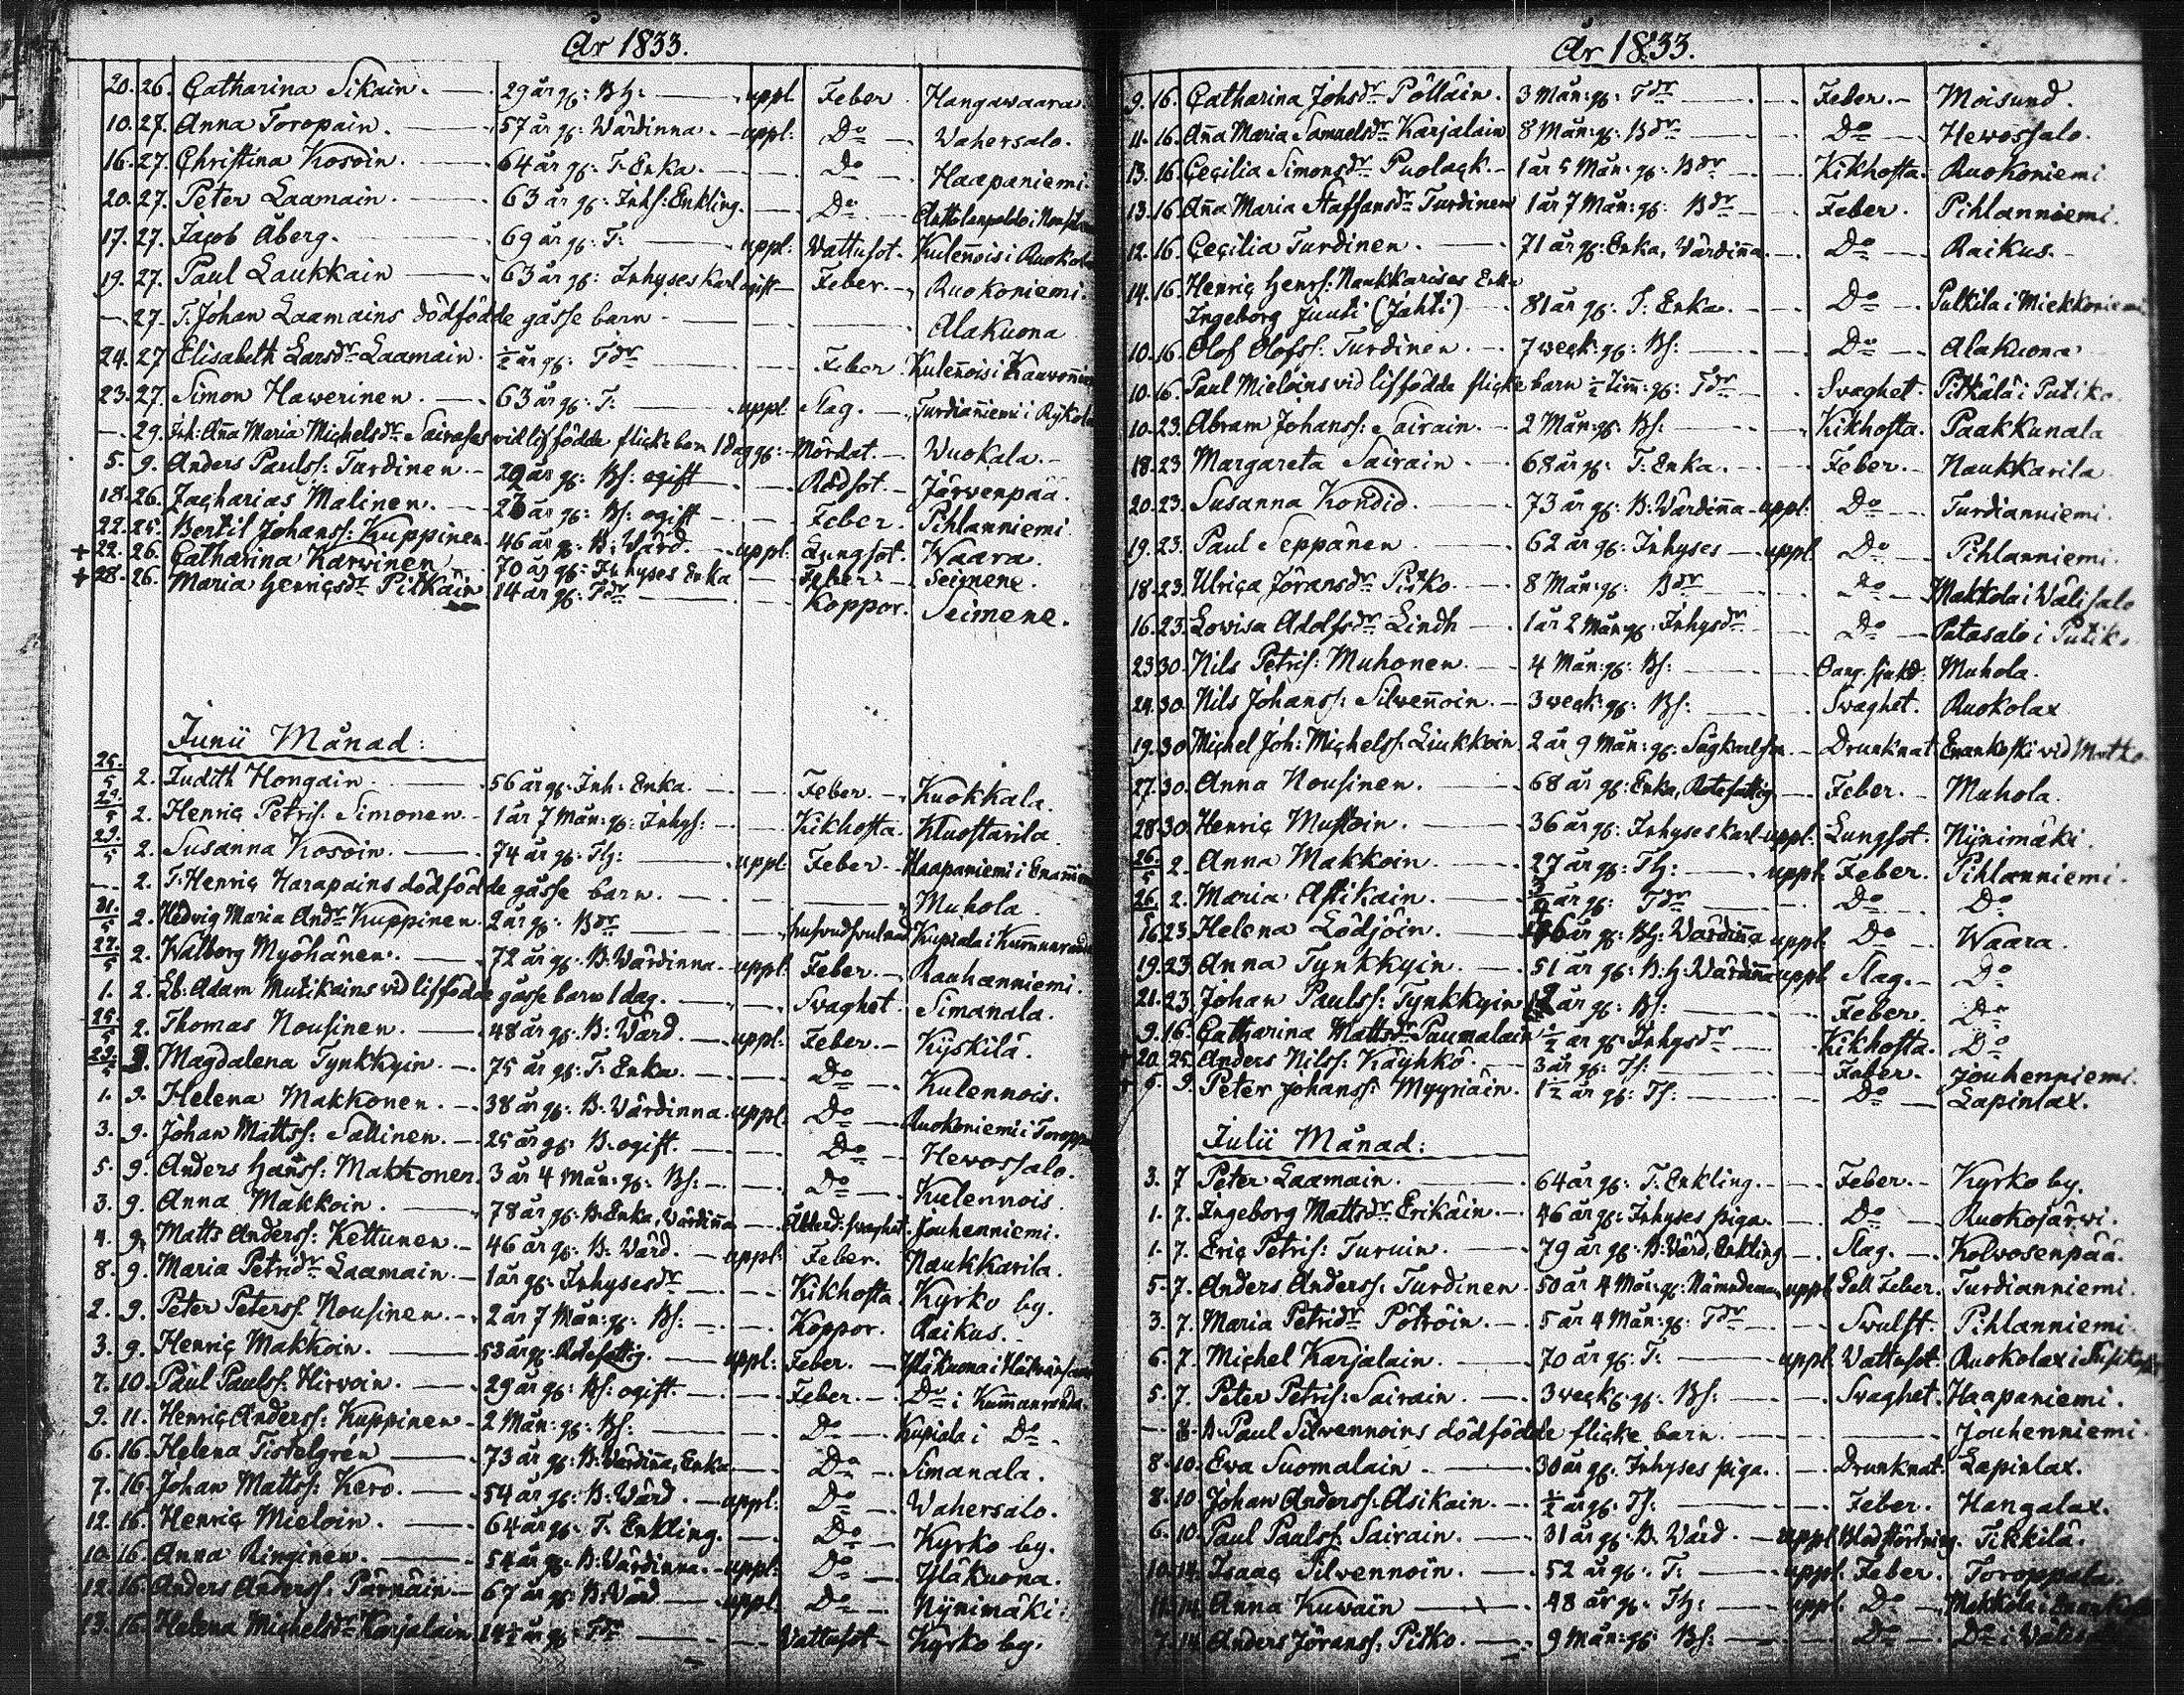 År 1833.
20. 26. Catharina Sikain. 29 år g: Bh: uppl Feber Hangawaara
10. 27. Anna Toropain. 57 år g: Wärdinna. uppl: Do Wahersalo.
16. 27. Christina Kosoin. 64 år g: T. Enka. Do Haapaniemi.
20. 27. Peter Laamain. 63 år g: Inhs: Enkling. Do
17. 27. Jacob Åberg. 69 år g: T: uppl: Wattusot. Kulennois i Ruokola
19. 27. Paul Laukkain 63 år g: Inhyseskarl ogift Feber. Ruokoniemi.
27. T. Johan Laamains dödfödde gåsse barn Alakuona
24. 27 Elisabeth Larsdr Laamain. ½ år g: Tdr Feber Kulennois i
23. 27. Simon Hawerinen. 63 år g: T: uppl Slag. Turdianiemi i
29. Inh: Aña Maria Michelsdr Sairases vid lif födde flicke barn 1 dag g: Mördat. Wuokala.
5. 9. Anders Paulss: Turdinen. 29 år g: Bs: ogift Rödsot. Järvenpää.
18. 26. Zacharias Malinen. 23 år g: Bs: ogift Feber. Pihlanniemi
22. 25. Bertil Johanss: Kuppinen 46 år g: B: Wärd. uppl: Lungsot. Waara
+ 22. 26. Catharina Karwinen 70 år g: Inhyses Enka Feber Seimene.
+ 28. 26. Maria Henricsdr Pitkäin 14 år g: Tdr Koppor. Seimene.
Junii Månad:
25/5 2. Judith Hongain. 56 år g: Inh: Enka. Feber. Kuokkala.
29/5 2. Henric Petris: Simonen. 1 år 7 Mån: g: Inhys: Kikhosta. Kluostarila.
29/5 2. Susanna Kosoin. 74 år g: Th: uppl: Feber Haapaniemi i
2. T: Henric Harapains dödfödde gåsse barn. Muhola
31/5 2. Hedvig Maria Andr Kuppinen. 2 år g: Bdr Kupiala i
22/5 2. Walborg Myöhänen. 72 år g: B: Wärdinna. uppl: Feber. Rauhanniemi.
1. 2. Lb: Adam Mutikains vid lif födde gåsse barn 1 dag. Svaghet. Simanala.
25/5 2. Thomas Nousinen. 48 år g: B: Wärd. uppl: Feber. Kyskilä.
29/5 9. Magdalena Tynkkyin. 75 år g: T: Enka. Do Kulennois.
1. 9. Helena Makkonen. 38 år g: B: Wärdinna. uppl: Do Ruokoniemi i
3. 9. Johan Mattss: Sallinen. 25 år g: B: ogift. Do Hevossalo.
5. 9. Anders Hanss: Makkonen. 3 år 4 Mån: g: Bs: Do Kulennois
3. 9. Anna Makkoin. 78 år g: B: Enka, Wärdiña Ålderd: svaghet. Jouhenniemi.
4. 9. Matts Anderss: Kettunen. 46 år g: B: Wärd. uppl: Feber. Naukkarila.
8. 9. Maria Petridr Laamain. 1 år g: Inhysesdr Kikhosta. Kyrko by.
2. 9. Peter Peterss. Nousinen. 2 år 7 Mån: g: Bs: Koppor. Raikus.
3. 9. Henric Makkoin. 53 år g: Rotefattig. uppl: Feber.
7. 10. Paul Paulss: Hirvoin. 29 år g: Bs: ogift. Feber. Do i
9. 11. Henric Anderss: Kuppinen 2 Mån: g: Bs: Do Kupiala i Do
6. 16. Helena Tistelgrén 73 år g: B: Wärdiña, Enka Do Simanala.
7. 16. Johan Mattss: Kero. 54 år g: B: Wärd. uppl: Do Wahersalo.
12. 16. Henric Mieloin. 64 år g: T: Enkling. Do Kyrko by.
10. 16. Anna Ringinen. 54 år g: B: Wärdinna. uppl: Do Yläkuona.
12. 16. Anders Anderss: Pärnäin. 67 år g: B: Wärd uppl: Do Nynimäki.
13. 16. Helena Michelsdr Karjalain 14½ år g: Tdr Wattusot Kyrko by.
År 1833.
9. 16. Catharina Johsdr Pöllain. 3 Mån: g: Tdr Feber. Moisund.
11. 16. Aña Maria Samuelsdr Karjalain 8 Mån: g: Bdr Do Hewossalo.
13. 16. Cecilia Simonsdr Puolack. 1 år 5 Mån: g: Bdr Kikhosta. Ruokoniemi
13. 16. Aña Maria Staffansdr Turdinen 1 år 7 Mån: g: Bdr Feber. Pihlanniemi.
12. 16. Cecilia Turdinen. 71 år g: Enka, Wärdiña. Do Raikus.
14. 16. Henric Henrs: Naukkarises Enka
Ingeborg Juuti (Jahti) 81 år g: T: Enka. Do Pulkila i Miekkoniemi
10. 16. Olof Olofss: Turdinen. 7 week: g: Bs: Do Alakuona
10. 16. Paul Mieloins vid lif födde flicke barn ½ Tim: g: Tdr Svaghet. Pitkälä i Putiko.
10. 23. Abram Johanss: Sairain. 2 Mån: g: Bs: Kikhosta. Paakkunala
18. 23 Margareta Sairain. 68 år g: T: Enka. Feber. Naukkarila
20. 23. Susanna Kondid. 73 år g: B: Wärdiña uppl: Do Turdianniemi.
19. 23. Paul Seppänen 62 år g: Inhyses uppl Do Pihlanniemi.
18. 23. Ulrica Jöransdr Pitko 8 Mån: g: Bdr Do Makkola i Wälisalo
16. 23. Lowisa Adolfsdr Lindh 1 år 2 Mån: g: Inhysdr Do Patasalo i Putiko
23 30. Nils Petris: Muhonen. 4 Mån: g: Bs: Muhola.
24. 30. Nils Johanss: Silvennoin. 3 week: g: Bs: Svaghet. Ruokolax
19. 30 Michel Joh: Michelss: Liukkoin 2 år 9 Mån: g: Drunknat. Enankoski vid
27. 30. Anna Nousinen. 68 år g: Enka, Rotefattig Feber. Muhola.
28. 30. Henric Mustoin. 36 år g: Inhyseskarl uppl. Lungsot. Nynimäki.
26/5 2. Anna Makkoin. 27 år g: Th: uppl: Feber. Pihlanniemi.
26/5 2. Maria Asikain. år g: Tdr Do Do
16. 23. Helena Lödjöin. år g: Bh: Wärdiña uppl: Do Waara.
19. 23. Anna Tynkkyin. 51 år g: B:h: Wärdiña uppl Slag. Do
21. 23. Johan Paulss: Tynkkyin år g: Bs: Feber. Do
9. 16. Catharina Mattsdr Paumalain ½ år g: Inhysdr Kikhosta. Do
+ 20. 25. Anders Nilss: Käyhkö 3 år g: Ts: Feber. Jouhenniemi.
+ 9. 9. Peter Johanss: Myyriäin. 1½ år g: Ts: Do Lapinlax.
Julii Månad:
3. 7 Peter Laamain. 64 år g: T. Enkling. Feber. Kyrko by.
1. 7. Ingeborg Mattsdr Erikäin. 46 år g: Inhyses piga. Do Ruokojärwi.
1. 7. Eric Petris: Turuin. 79 år g: B: Wärd, Enkling. Slag. Kolvosenpää.
5. 7. Anders Anderss: Turdinen 50 år 4 Mån: g: Nämndeman uppl Gall Feber. Turdianniemi.
3. 7. Maria Petridr Pöträin. 5 år 4 Mån: g: Tdr Svulst. Pihlanniemi.
6. 7. Michel Karjalain. 70 år g: T: uppl. Wattusot. Ruokolax i
5. 7. Peter Petris: Sairain. 3 week: g: Bs: Svaghet. Haapaniemi.
8. B. Paul Silvennoins dödfödde flicke barn. Jouhenniemi.
8. 10. Ewa Suomalain. 30 år g: Inhyses piga. Drunknat: Lapinlax.
8. 10 Johan Anderss: Asikain. ½ år g: Ts: Feber. Hangalax.
6. 10. Paul Paulss: Sairain. 31 år g: B. Wärd. uppl Blodstörtning. Tikkilä.
10. 14. Isaac Silvennoin. 52 år g: T: uppl. Feber. Toroppala.
11. 14. Anna Kuwain 48 år g: Th: uppl. Do Makkola i
7. 14. Anders Jöranss: Pitko. 9 Mån: g: Bs: Do Do i